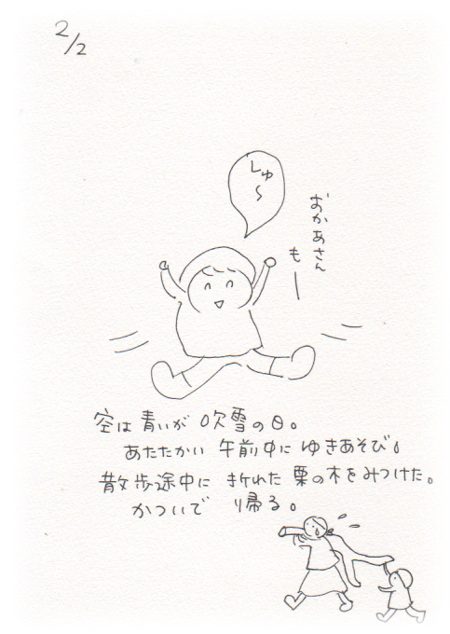 2/2
しゅ〜
おかあさん
もー
空は青いが吹雪の日。
あたたかい午前中にゆきあそび。
散歩途中に折れた栗の木をみつけた。
かついで帰る。